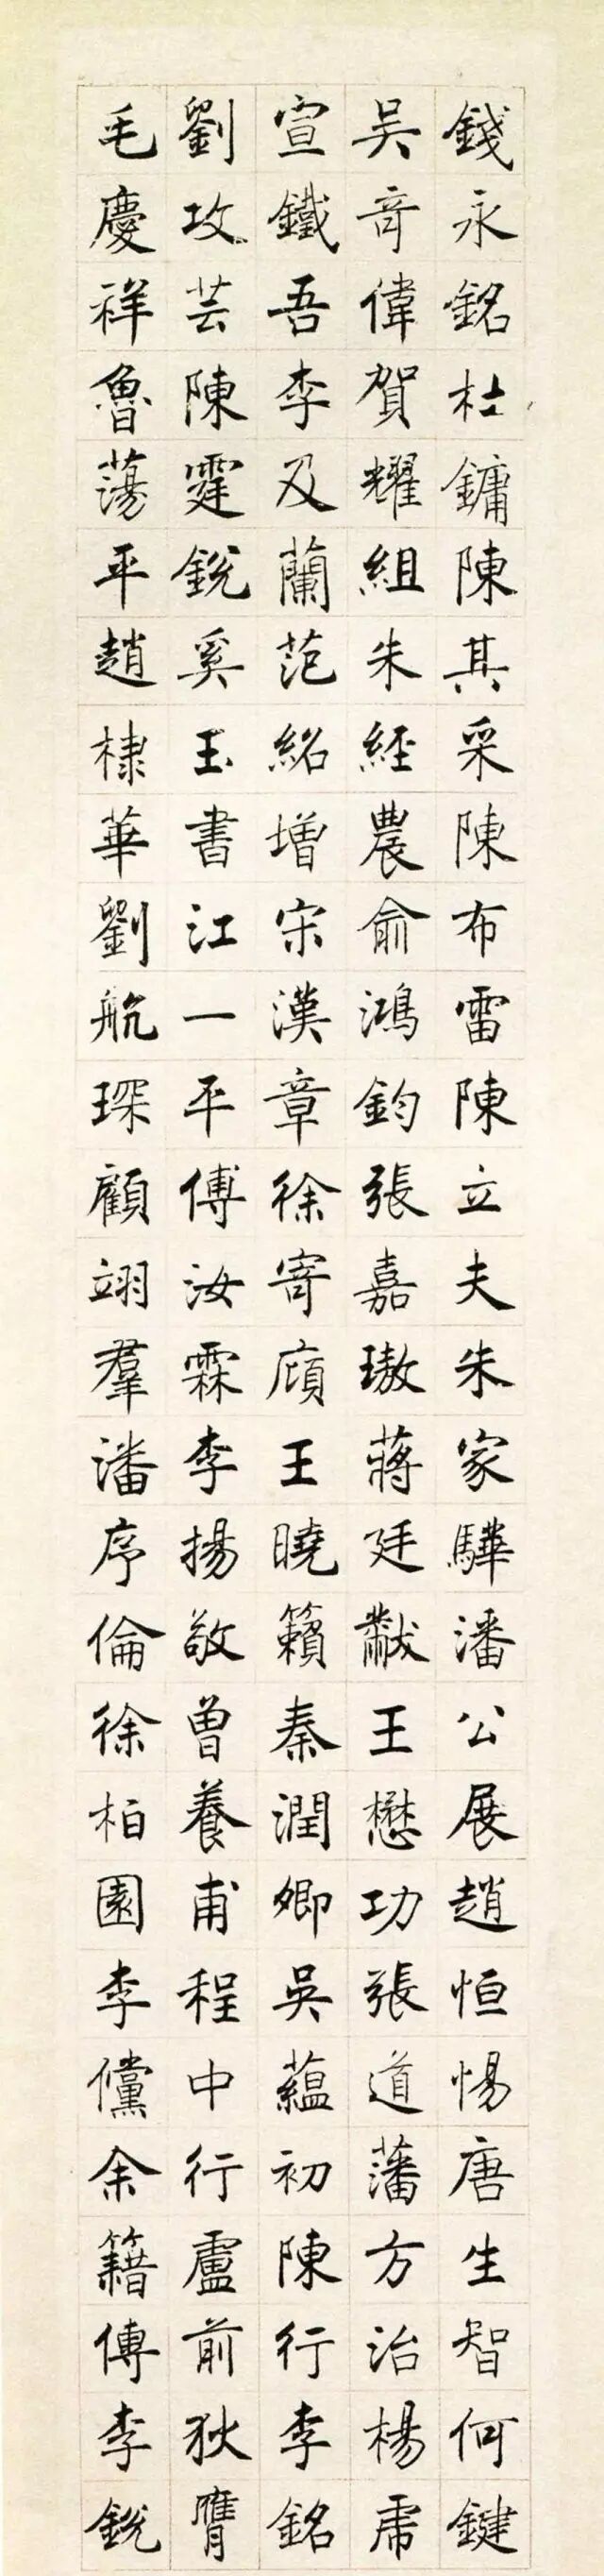 錢永銘杜鏞陳其采陳布雷陳立夫朱家驊潘公展趙恒惕唐生智何鍵
吳奇偉賀耀組朱經農俞鴻鈞張嘉璈蔣廷黻王懋功張道藩方治楊虎
宣鐵吾李及蘭范紹增宋漢章徐寄廎王曉籟秦潤卿吳蘊初陳行李銘
劉攻芸陳霆銳奚玉書江一平傅汝霖李揚敬曾養甫程中行盧前狄膺
毛慶祥魯蕩平趙棣華劉航琛顧翊羣潘序倫徐柏園李儻余籍傳李銳